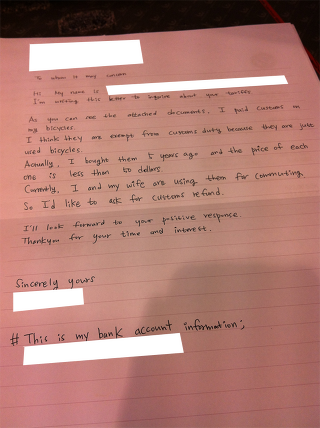 To whom it may concern
Hi My name is
I'm writing this letter to inquire about your tariffs.
As you can see the attached documents, I paid customs on
my bicycles.
I think they are exempt from customs duty because they are just
used bicycles.
Actually, I bought them 5 years ago and the price of each
one is less than 50 dollars
Currently, I and my wife are using them for commuting.
So I'd like to ask for customs refund.
I'll look forward to your positive responce.
Thankyou for your time and interest.
Sincerely yours
# This is my bank account information;